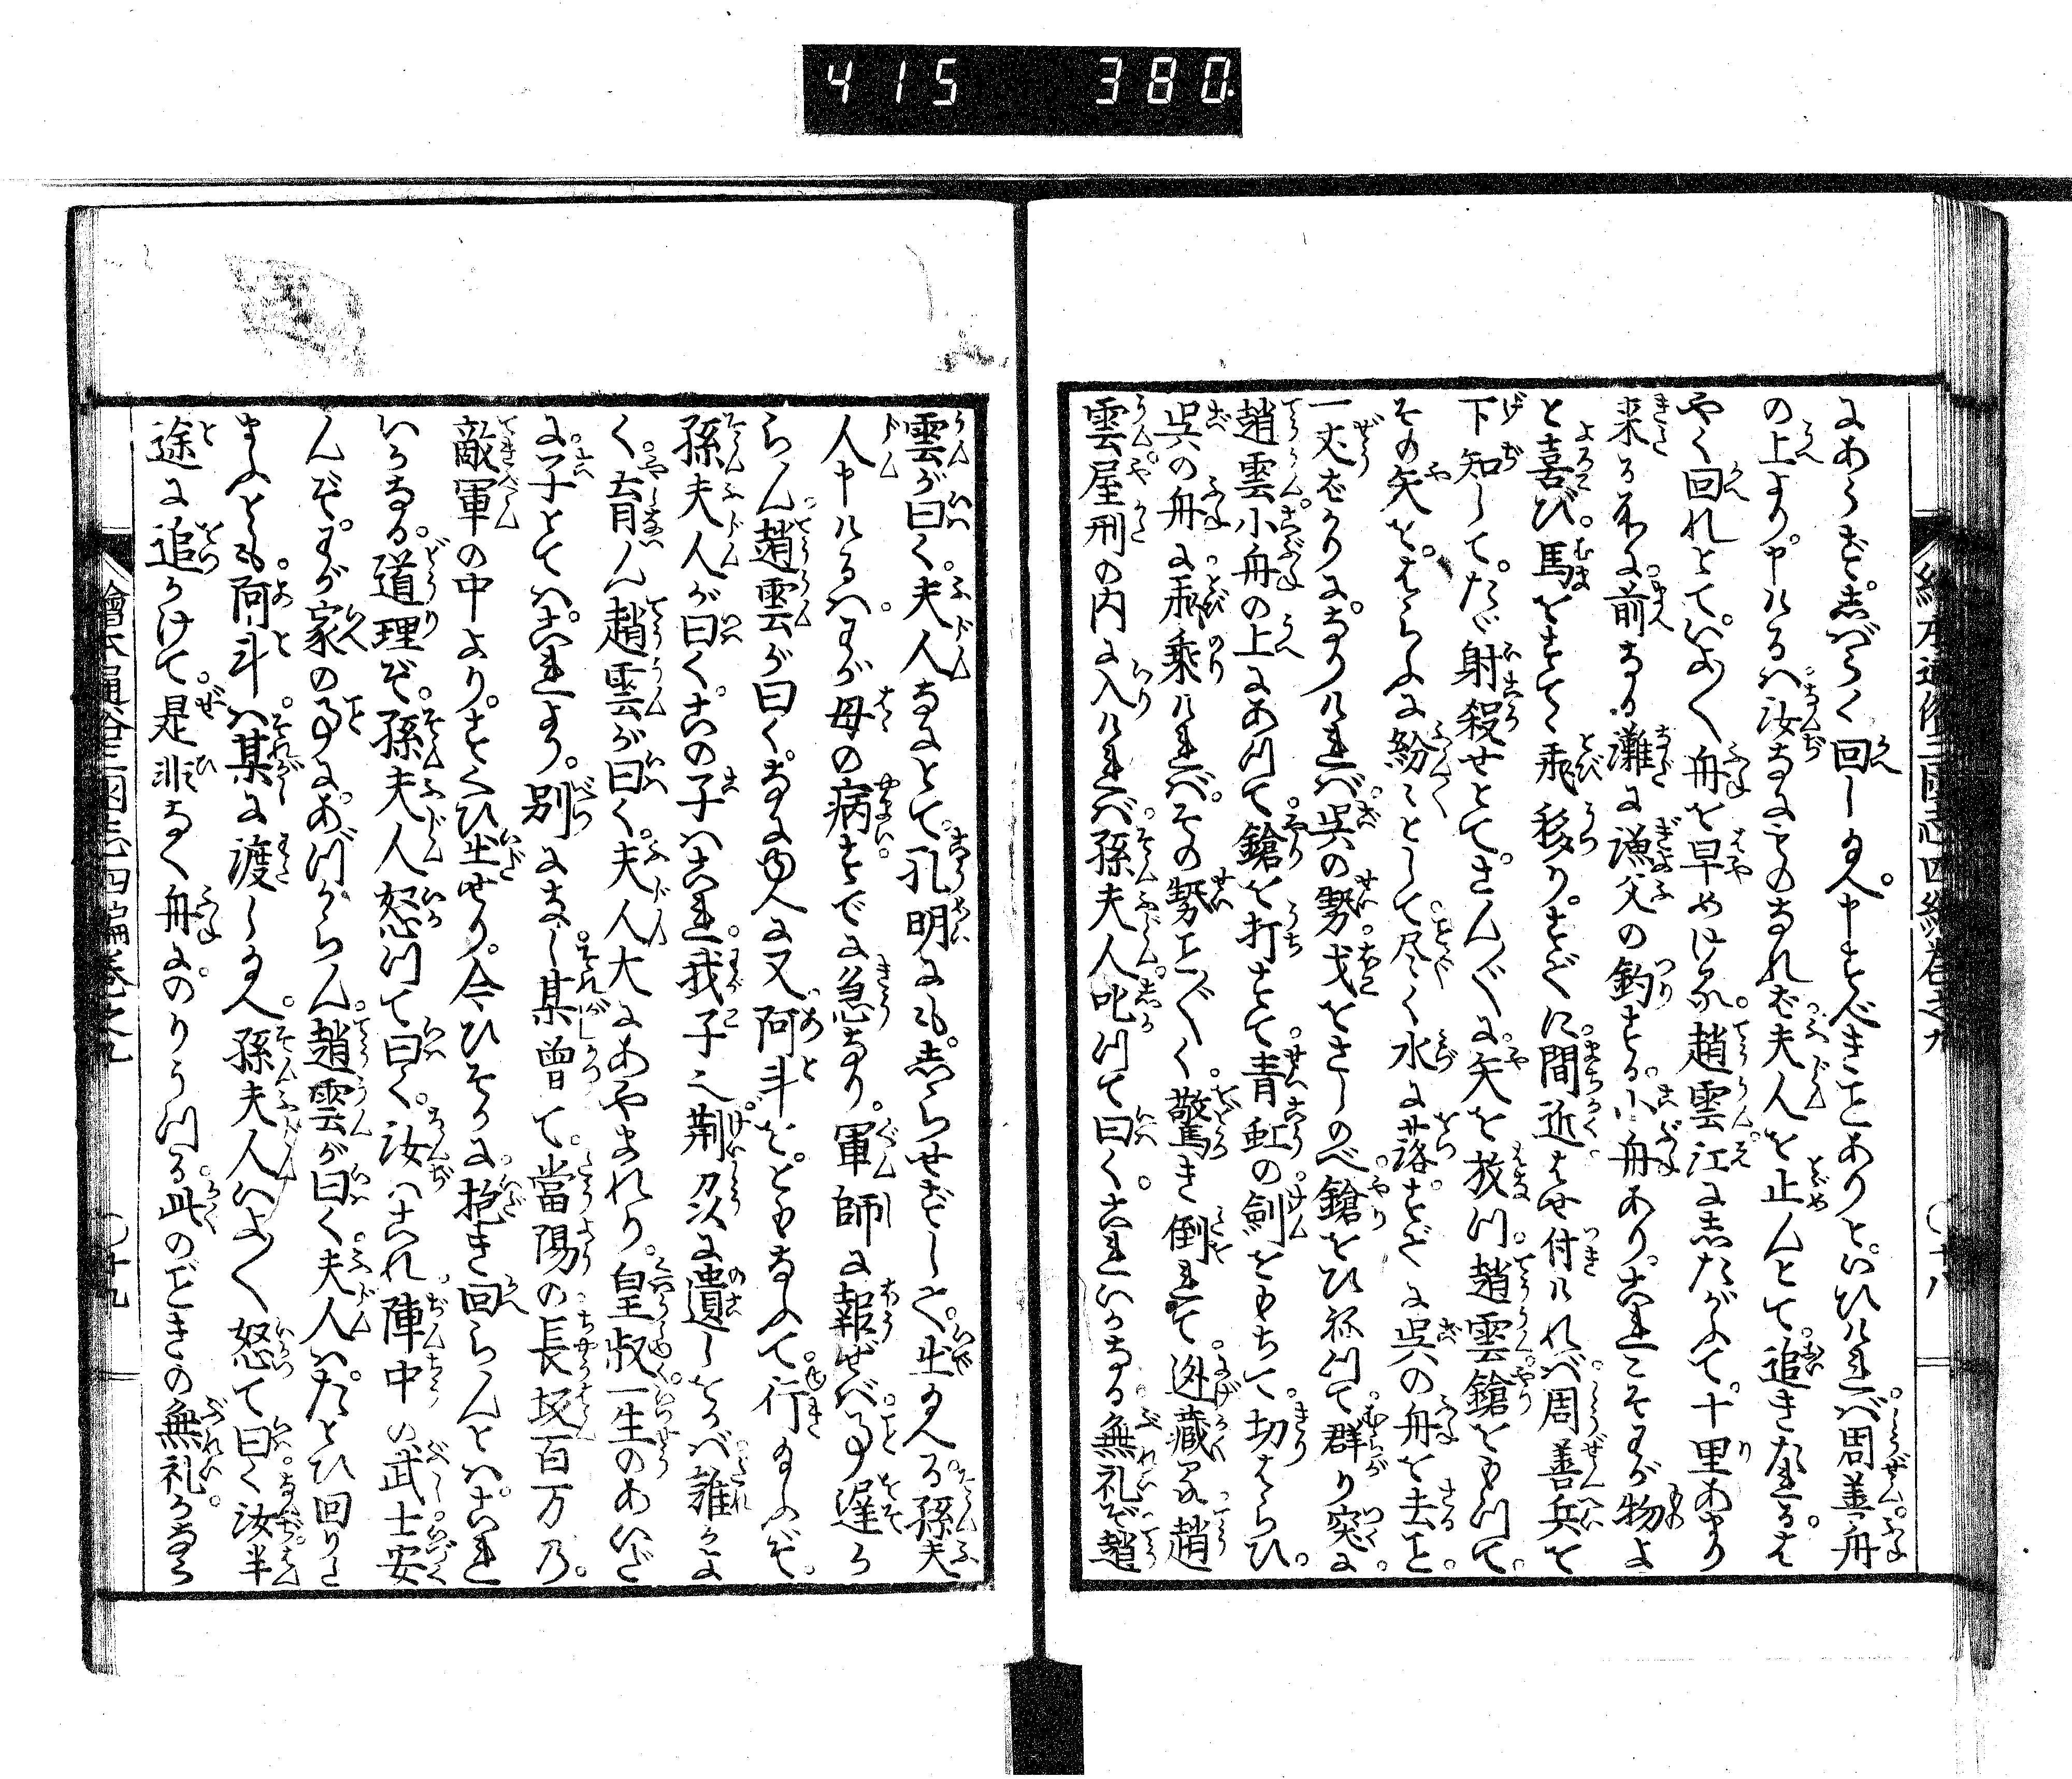 415 380
にあらず。志ばらく回し玉へ。申すべきことありと。いひければ。周善舟
の上より。申けるハ。汝なにものなれば。夫人を止んとて。追きたれるは
やく回れとて。いよ〱舟を早めける。趙雲江に志たがふて。十里あまり
来る所に。前なる灘に漁父の釣する。小舟あり。これこそわが物よ
と喜び。馬をすてゝ飛移り。すでに間近くはせ付ければ。周善兵を
下知して。たゞ射殺せとて。さん〲に矢を放つ。趙雲鎗をもつて。
その矢を。はらふに紛〻として尽く水に落。すでに呉の舟を去こと。
一丈ばかりに。なりければ。呉の勢戈をさしのべ。鎗をひねつて群り突に。
趙雲小舟の上にあつて。鎗を打すて。青虹の剣をもちて。切はらひ。
呉の舟に飛乗ければ。その勢こと〲く。驚き倒れて。迯蔵る。趙
雲屋形の内に入ければ。孫夫人叱つて曰く。これいかなる無礼ぞ趙
雲が曰く。夫人なにとて。孔明にも。志らせずして。出玉へる。孫夫
人申けるハ。わが母の病すでに急なり。軍師に報ぜバ。事遅か
らん趙雲が曰く。なにゆへに又阿斗を。ともなふて。行玉ふぞ。
孫夫人が曰く。この子ハこれ。我子也。荊州に遺しをかバ。誰かよ
く。育ハん趙雲が曰く。夫人大にあやまれり。皇叔一生のあいだ
に。子とてハこれより。別になし。某曽て。當陽の長坂百万乃。
敵軍の中より。すくひ出せり。今ひそかに抱き回らんとハ。これ
いかなる。道理ぞ。孫夫人怒つて曰く。汝ハこれ陣中の武士安
んぞ。わが家の事に。あづからん。趙雲が曰く。夫人ハ。たとひ回りた
まふとも。阿斗ハ。某に渡し玉へ。孫夫人いよ〱怒て曰く。汝半
途に追かけて。是非なく舟に。のりうつる。此のごときの無礼。かなら
繪本通俗三國志四編巻之九 〇十八
繪本通俗三國志四編巻之九 〇十九